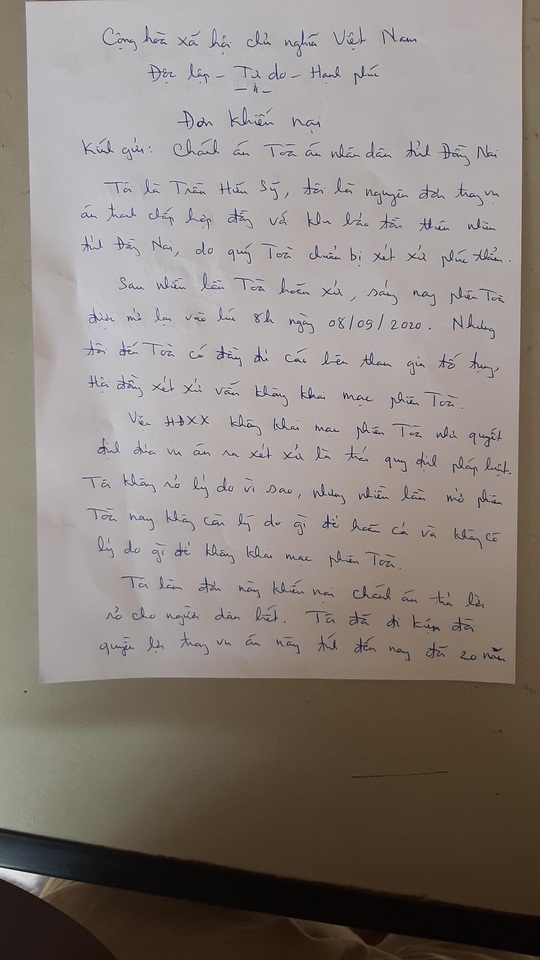 Cộng hòa xã hội chủ nghĩa Việt Nam
Độc lập - Tự do - Hạnh phúc
Đơn khiếu nại
Kính gửi: Chánh án Toà án nhân dân tỉnh Đồng Nai
Tôi là Trần Hữu Sỹ, tôi là nguyên đơn trong vụ
án tranh chấp hợp đồng với khu bảo tồn thiên nhiên
tỉnh Đồng Nai, do quý Toà chuẩn bị xét xử phúc thẩm.
Sau nhiều lần Toà hoãn xử, sáng nay phiên Toà
được mở lại vào lúc 8h ngày 08/09/2020. Nhưng
tôi đến Toà có đầy đủ các bên tham gia tố tụng,
Hội đồng xét xử vẫn không khai mạc phiên Toà.
Việc HĐXX không khai mạc phiên Toà như quyết
định đưa vụ án ra xét xử là trái quy định pháp luật.
Tôi không rõ lý do vì sao, nhưng nhiều lần mở phiên
Toà nay không cần lý do gì để hoãn cả và không có
lý do gì để không khai mạc phiên Toà.
Tôi làm đơn này khiếu nại chánh án trả lời
rõ cho người dân biết. Tôi đã đi kiếm đã
quyền lợi trong vụ án này tính đến nay đã 20 năm